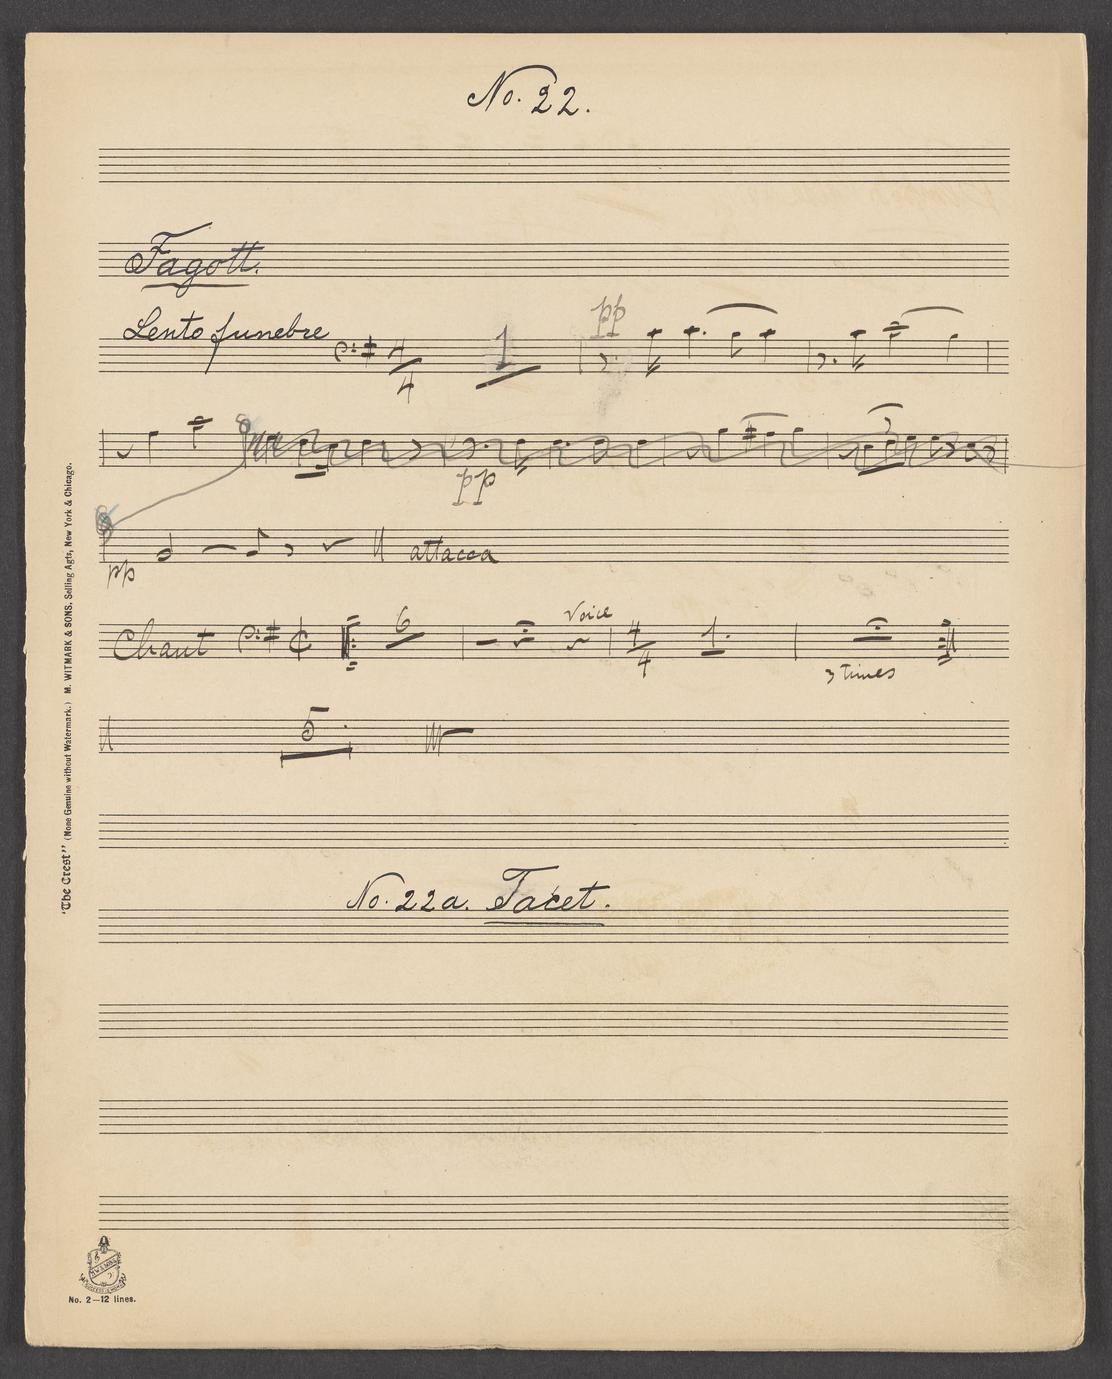 No. 22.
Fagott.
Lento funebre
4
4
1
pp
pp
pp
attacca
Chant
6
Voice
4
4
1.
3 times
5
No. 22a. Tacet.
"The Crest" (None Genuine without Watermark.) M. WITMARK & SONS, Selling Agts, New York & Chicago.
No. 2—12 lines.